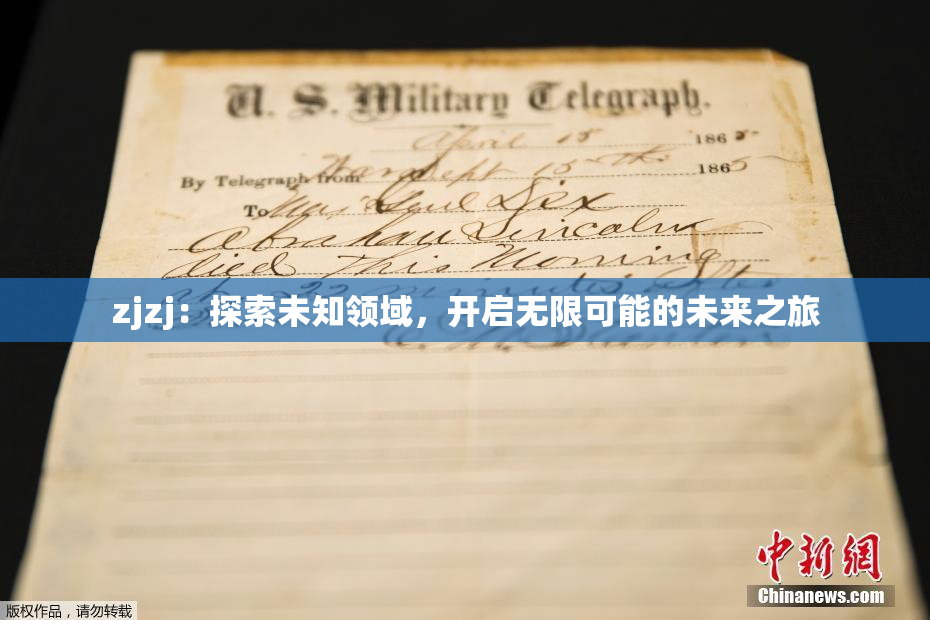 U. S. Military Telegraph.
April 15 1865
By Telegraph from War Dept 15th 1865
To Maj Genl Dix
Abraham Lincoln
died This Morning
at 22 minutes after
zjzj：探索未知领域，开启无限可能的未来之旅
中新網
Chinanews.com
版权作品，请勿转载